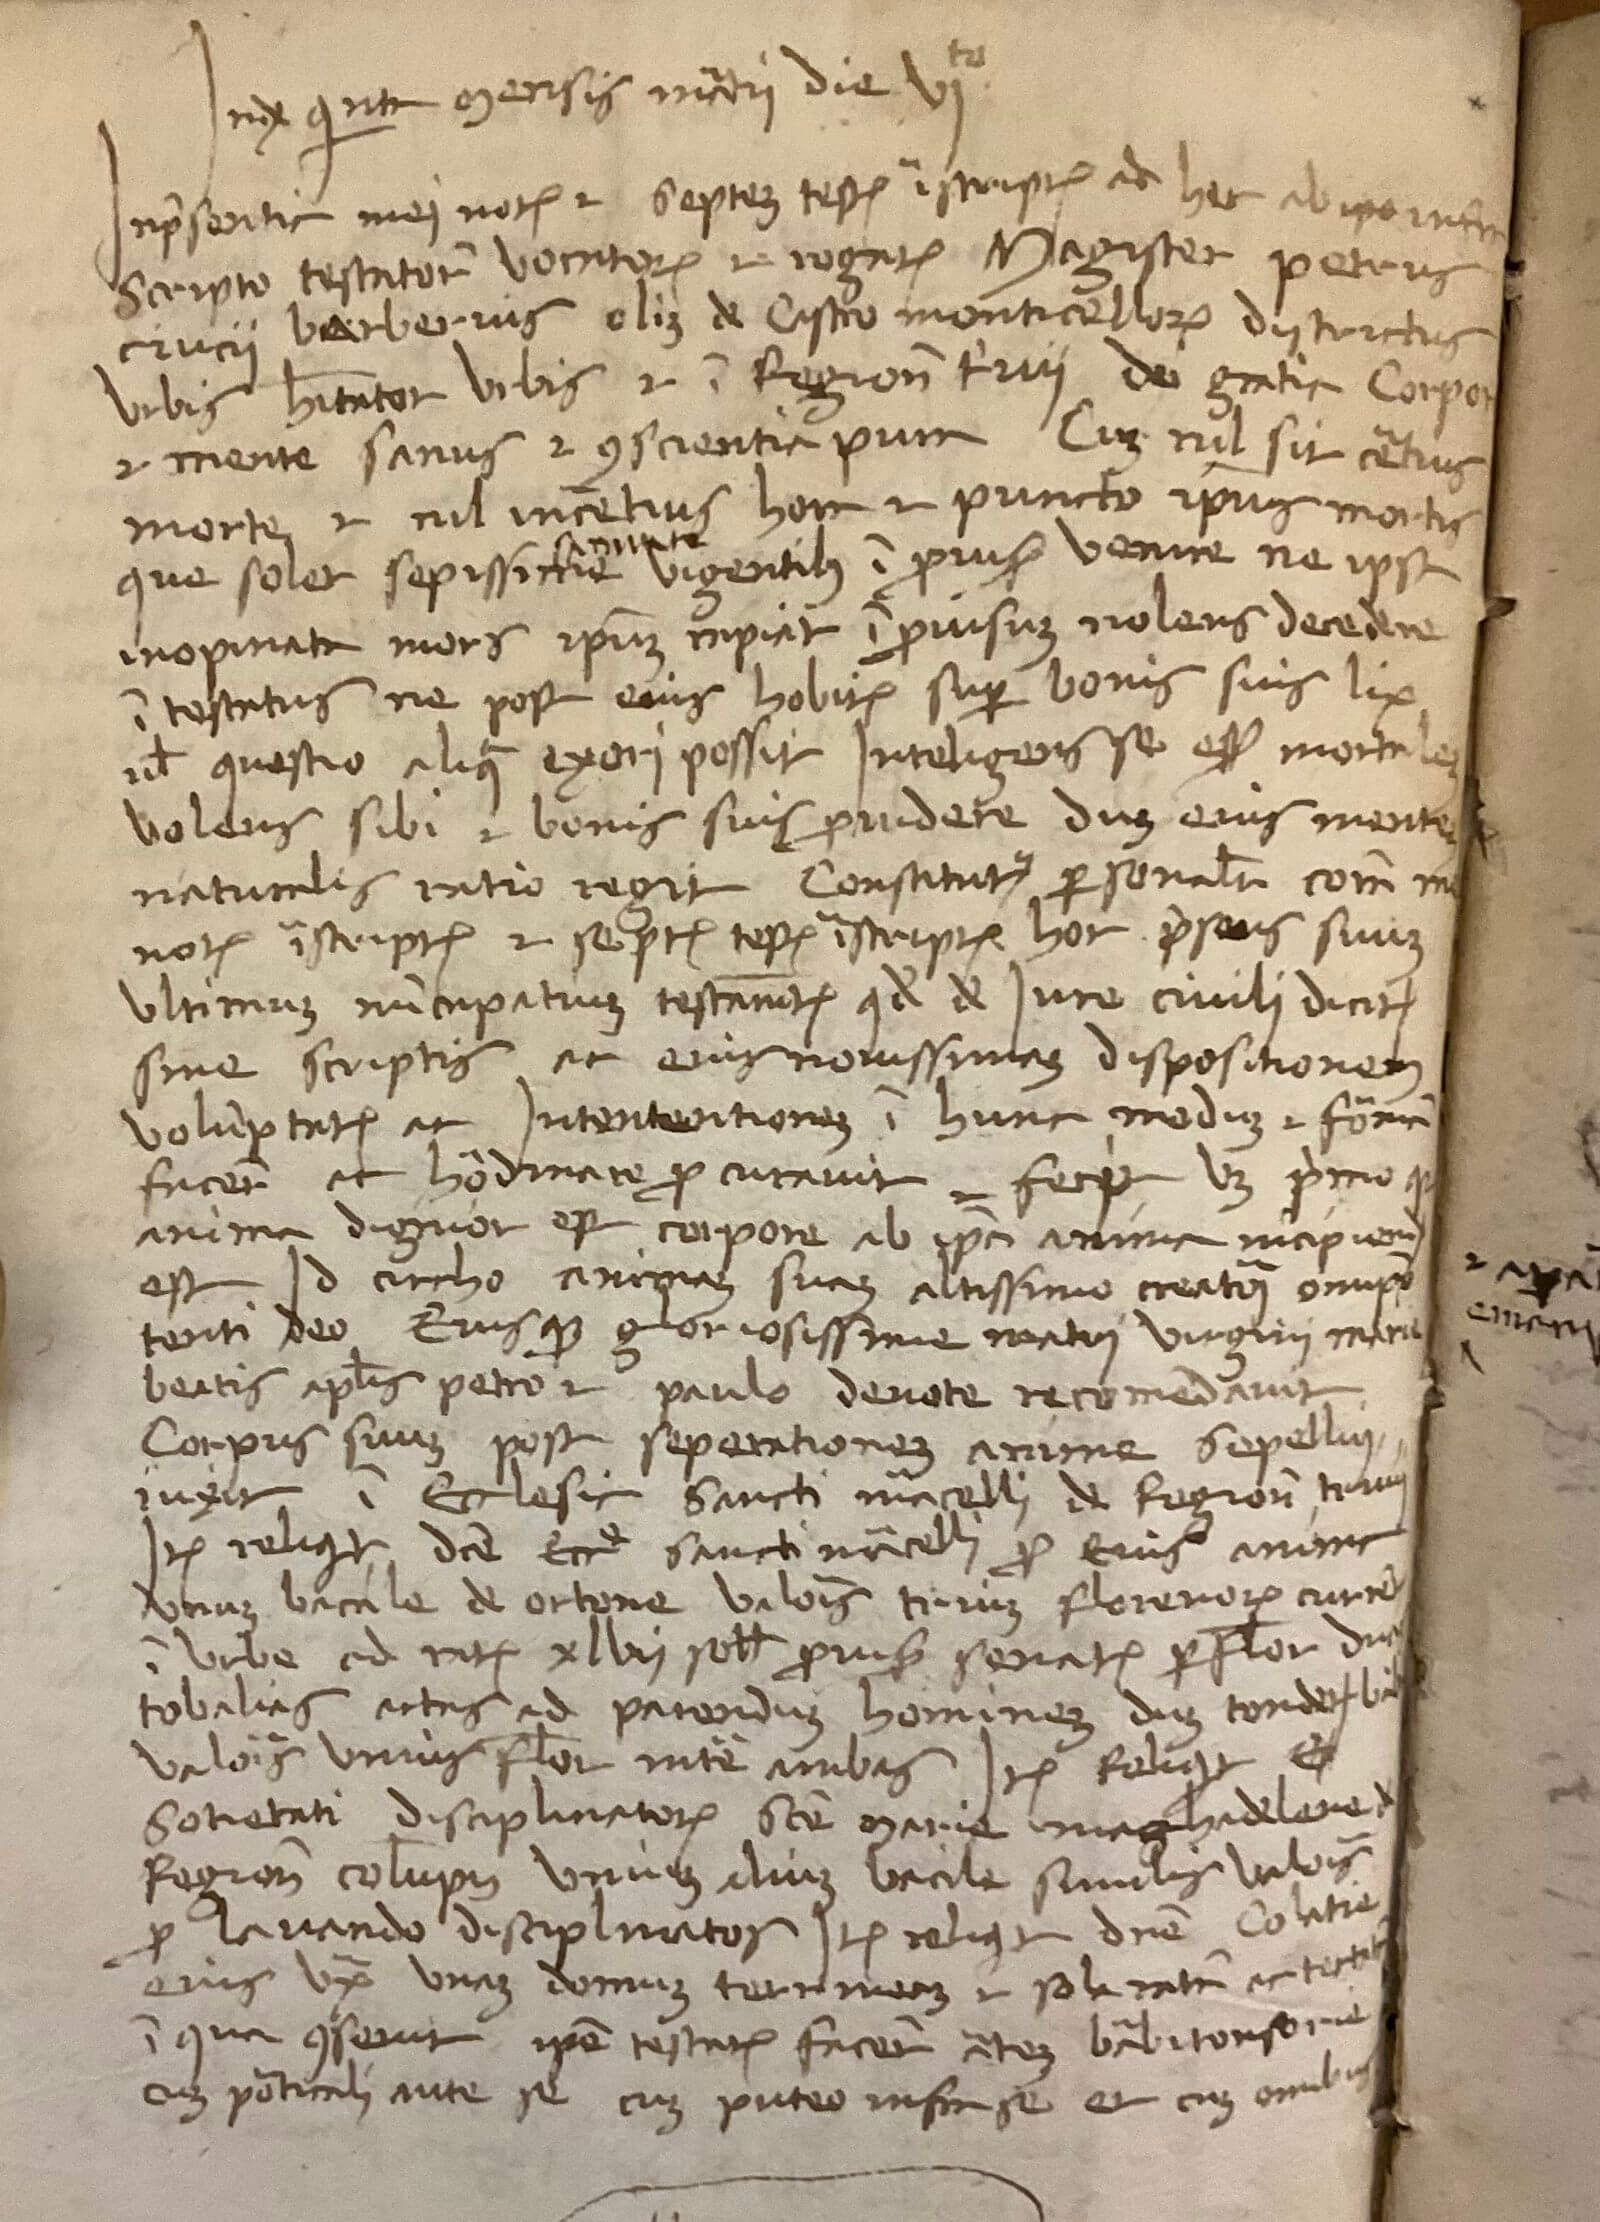 Ind quarta mensis martii die VIta
In presentia mei notarii et septem testium infrascriptorum ad hec ab ipso infra
scripto testatore vocatorum et rogatorum Magister petrus
crucii barberius olim de Castro monticellorum districtus
Urbis habitator Urbis et in Regione trivii dei gratia Corpore
et mente sanus et conscientia pura Cum nil sit certius
morte et nil incertius hora et puncto ipsius mortis
que solet sepissime sanitate vigentibus improvise venire ne ipsa
inopinata mors ipsum capiat improvisum nolens decedere
intestatus ne post eius hobitum super bonis suis lix
vel questio aliqua exori possit Inteligens se esse mortalem
volens sibi et bonis suis providere dum eius mentem
naturalis ratio regit Constitutus personaliter coram me
notario infrascripto et septem testibus infrascriptis hoc presens suum
ultimum nuncupativum testamentum quod de Jure civili dicitur
sine scriptis ac eius novissimam dispositionem
volumptatem ac Intententionem in hunc modum et formam
facere ac hordinare procuravit et fecit videlicet primo quia
anima dignior est corpore ab ipsa anima incipiendum
est Id circho animam suam altissimo creatori omnipo
tenti deo Eiusque gloriosissime matri virgini marie
beatis apostolis petro et paulo devote recomendavit
Corpus suum post seperationem anime sepelliri
iuxit in Ecclesia Sancti marcelli de Regione trivii
Item reliquit dicte Ecclesie sancti marcelli pro Eius anima
unum bacile de ortone valoris trium florenorum currentium
in Urbe ad rationem xlvii soll provisinorum senatus pro flor duas
tobalias actas ad parendum hominem dum tondetur
valoris unius flor inter ambas Item Reliquit
Sotietati disciplinatorum Sancte marie maghdelene de
Regione columpne unum aliud bacile similis valoris
pro lavando disciplinatos Item reliquit domine Colatie
eius uxori unam domum terrineam et solaratam ac tectatam
in qua consuevit ipse testator facere artem barbitonsorie
cum porticali ante se cum puteo infra se et cum omnibus